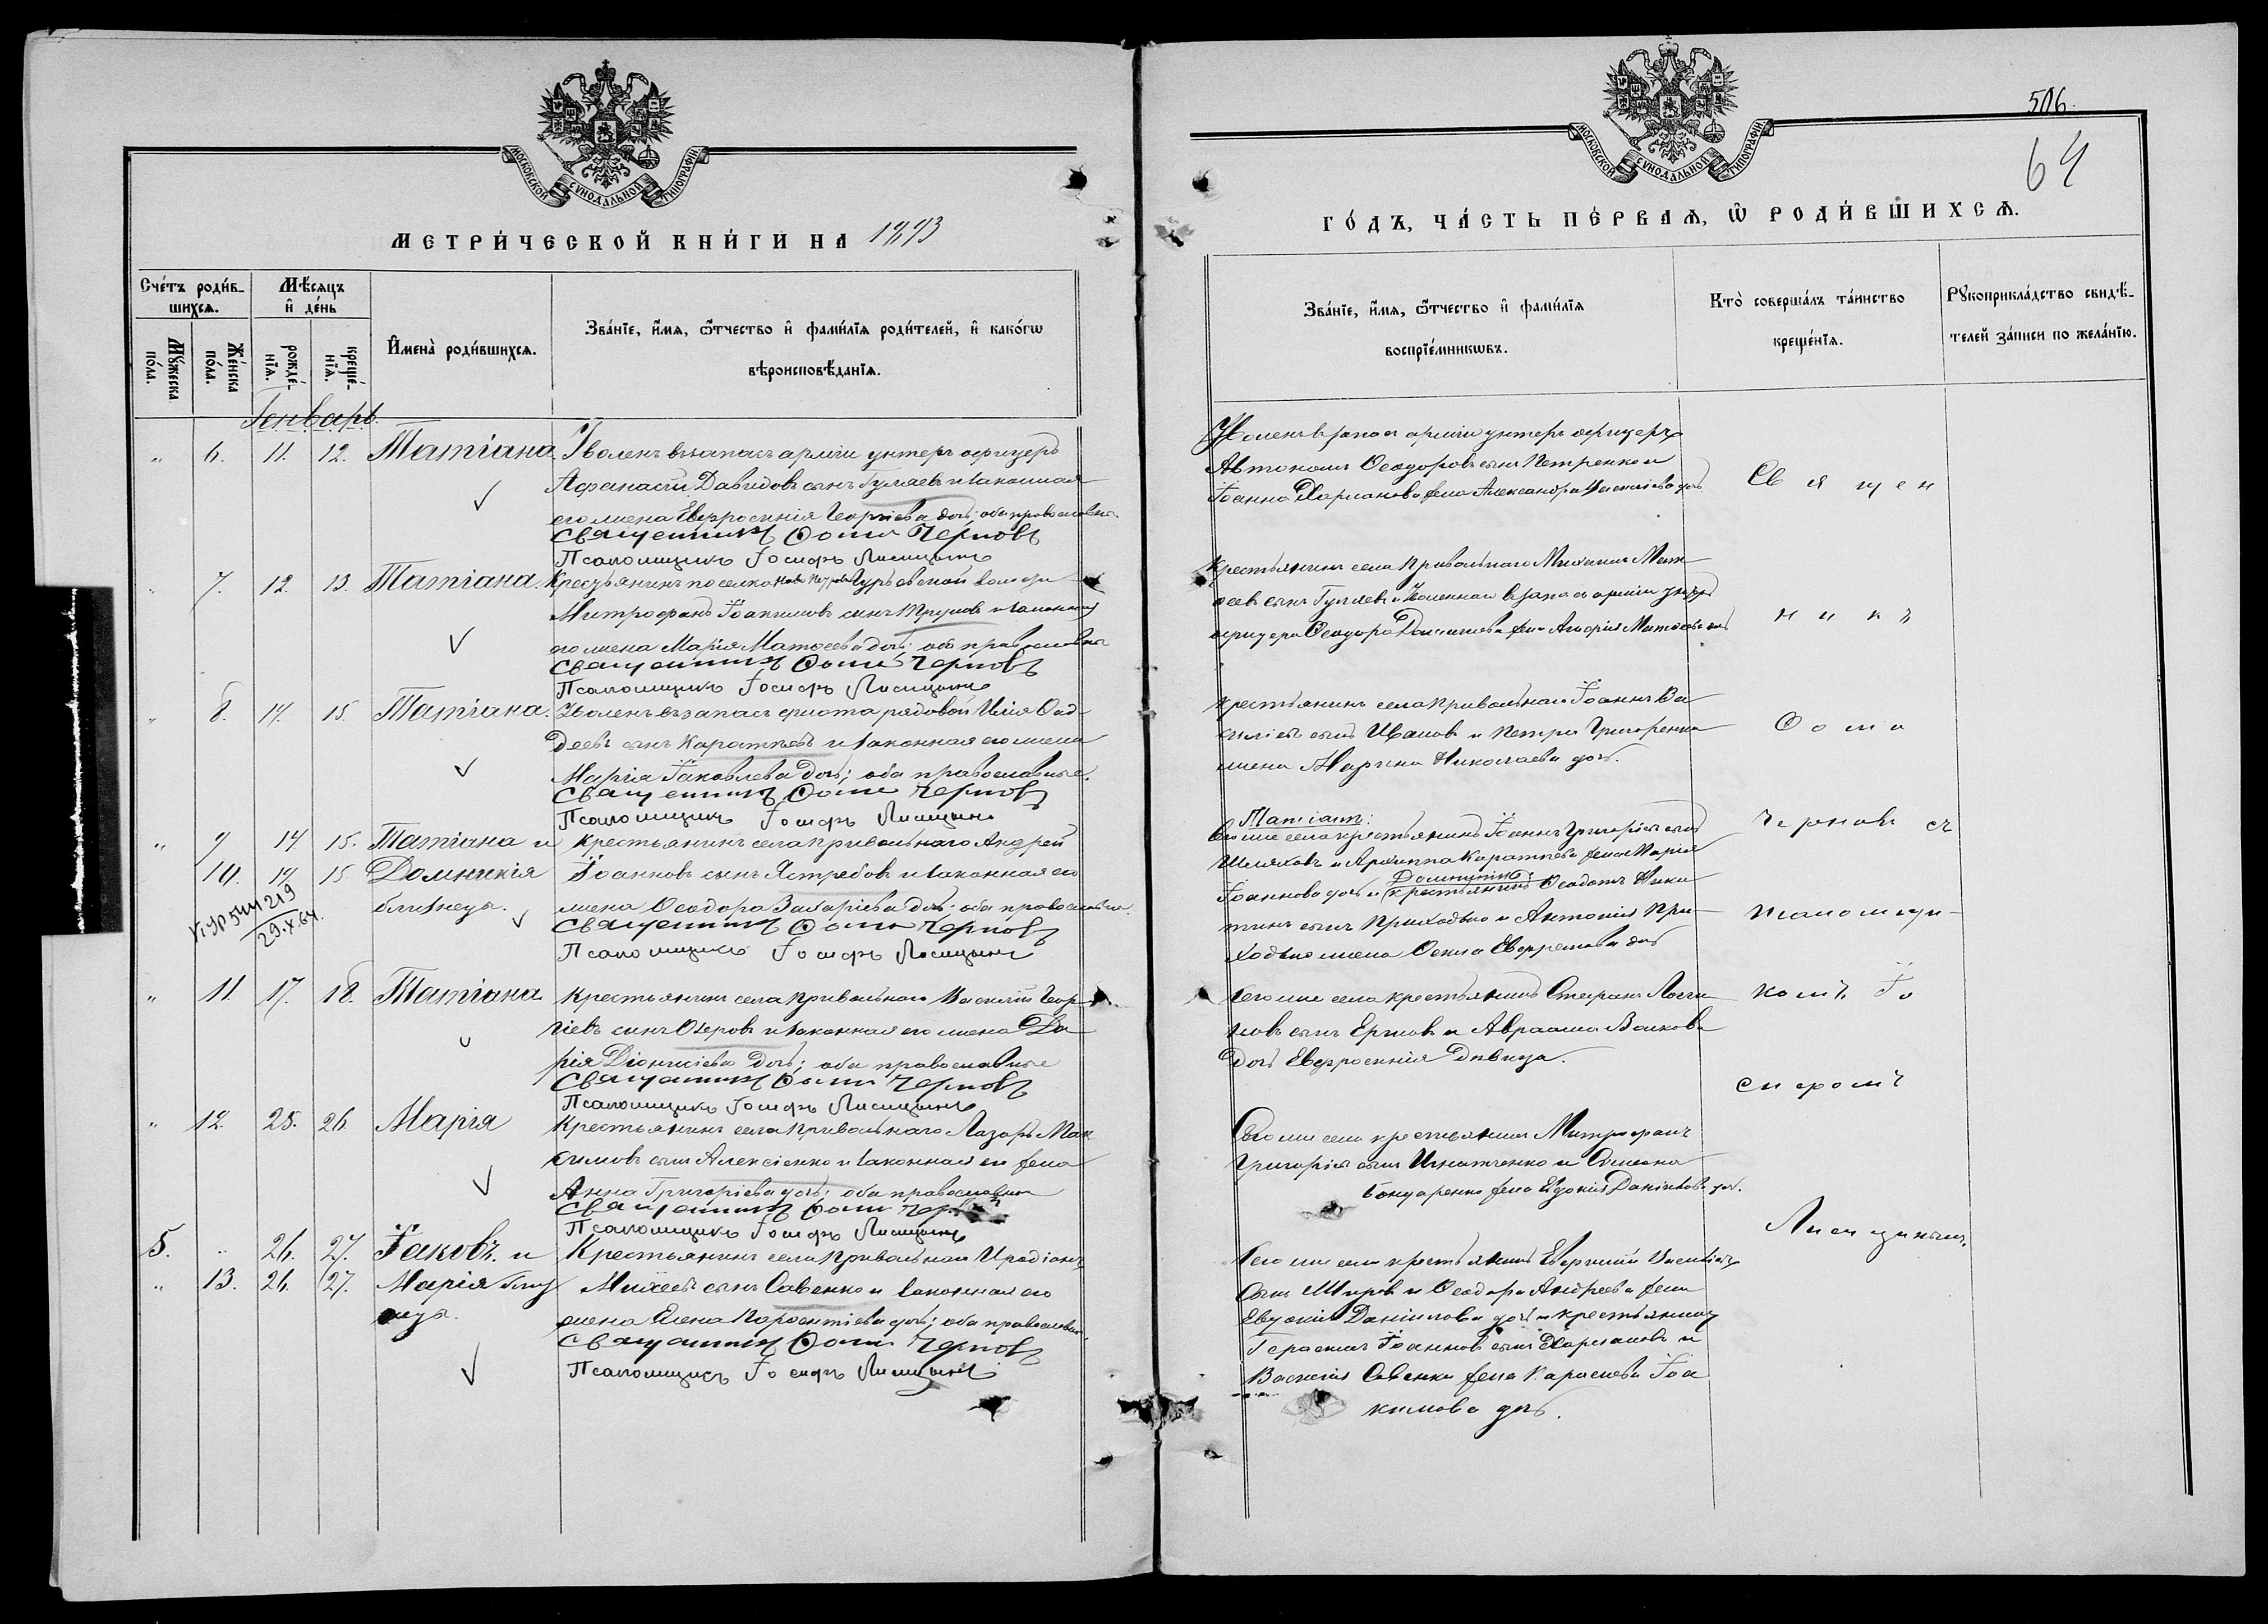 МОСКОВСКОЙ СѴНОДАЛЬНОЙ ТИПОГРАФІИ
МЕТРИ́ЧЕСКОЙ КНИ́ГИ НА 1893
Сче́тъ роди́в-
шихсѧ.
Мѣ́сяцъ
и҆ де́нь
Мꙋ́жеска по́ла.
Же́нска по́ла.
рожде́нїѧ.
креще́нїѧ.
И҆мена̀ роди́вшихсѧ.
Зва́нїе, и҆́мѧ, ѻ҆́тчество и҆ фами́лїѧ роди́телей, и҆ како́гѡ
вѣроисповѣ́данїѧ.
Генварь
„ 6. 11. 12. Татіана Уволенъ въ запасъ арміи унтеръ офицеръ
Афанасій Давидовъ сынъ Гуляевъ и законная
его жена Евфросинія Георгіева дочь; оба православные
Священникъ Ѳома Черновъ
Псаломщикъ Іосифъ Лисицынъ
„ 7. 12. 13. Татіана Крестьянинъ поселка волости
Митрофанъ Іоакимовъ сынъ и законная
его жена Марія Матѳеева дочь; оба православные
Священникъ Ѳома Черновъ
Псаломщикъ Іосифъ Лисицынъ
„ 8. 14. 15. Татіана. Уволенъ въ запасъ флота рядовой Илія Ѳад-
деевъ сынъ Каратаевъ и законная его жена
Марія Іаковлева дочь; оба православные.
Священникъ Ѳома Черновъ
Псаломщикъ Іосифъ Лисицынъ
„ 9 14 15. Татіана и Крестьянинъ села Привольнаго Андрей
„ 10. 14. 15. Домникія Іоанновъ сынъ Ястребовъ и законная его
близнецы. жена Ѳеодора Захаріева дочь; оба православные.
219
29.X.64.
Священникъ Ѳома Черновъ
Псаломщикъ Іосифъ Лисицынъ
„ 11. 17. 18. Татіана Крестьянинъ села Привольнаго Василій Геор-
гіевъ сынъ Озеровъ и законная его жена Да
рія Діонисіева дочь; оба православные
Священникъ Ѳома Черновъ
Псаломщикъ Іосифъ Лисицынъ
„ 12. 25. 26. Марія Крестьянинъ села Привольнаго Лазарь Мак
симовъ сынъ Алексіенко и законная его жена
Анна Григоріева дочь; оба православные
Священникъ Ѳома
Псаломщикъ Іосифъ Лисицынъ
5. „ 26. 27. Іаковъ и Крестьянинъ села Привольнаго Иродіонъ
„ 13. 26. 27. Марія близ Михеевъ сынъ Савенко и законная его
нецы. жена Елена дочь; оба православные.
Священникъ Ѳома Черновъ
Псаломщикъ Іосифъ Лисицынъ
506.
64
МОСКОВСКОЙ СѴНОДАЛЬНОЙ ТИПОГРАФІИ
ГО́ДЪ, ЧА́СТЬ ПЕ́РВАѦ, Ѡ҆ РОДИ́ВШИХСѦ.
Зва́нїе, и҆́мѧ, ѻ҆́тчество и҆ фами́лїѧ
воспрїе́мникѡвъ.
Кто̀ соверша́лъ та́инство
креще́нїѧ.
Рꙋкоприкла́дство свидѣ́-
телей за́писи по жела́нїю.
Уволенъ въ запасъ арміи унтеръ офицеръ
Автономъ Ѳеодоровъ сынъ Петренко и
Іоанна жена Александра Василіева дочь
Крестьянинъ села Привольнаго Михаилъ Мат-
ѳеевъ сынъ Гуляевъ и уволеннаго въ запасъ арміи унтеръ
офицера Ѳеодора жена Матѳеева дочь
Крестьянинъ села Привольнаго Іоаннъ Ва
силіевъ сынъ Ивановъ и Петра Григоренка
жена Марина Николаева дочь.
Татіаны:
села крестьянинъ Іоаннъ Григоріевъ сынъ
Шляховъ и Архиппа Каратаева жена Марія
Домникіи:
Іоаннова дочь и крестьянинъ Ѳеодотъ Ники
тинъ сынъ Приходько и Антонія При-
ходько жена Евфремова дочь
Того же села крестьянинъ Стефанъ
новъ сынъ Ершовъ и Авраама Волкова
дочь Евфросинія дѣвица.
Того же села крестьянинъ Митрофанъ
Григоріевъ сынъ Игнатченко и
Бондаренко жена Евдокія Даніилова дочь.
Того же села крестьянинъ Василіевъ
сынъ и Ѳеодора Андреева жена
Евдокія Даніилова дочь и крестьянинъ
Герасимъ Іоанновъ сынъ и
Василія Савенки жена Іоа
кимова дочь.
Священ
никъ
Ѳома
Черновъ съ
псаломщи-
комъ Іо
сифомъ
Лисицынымъ.